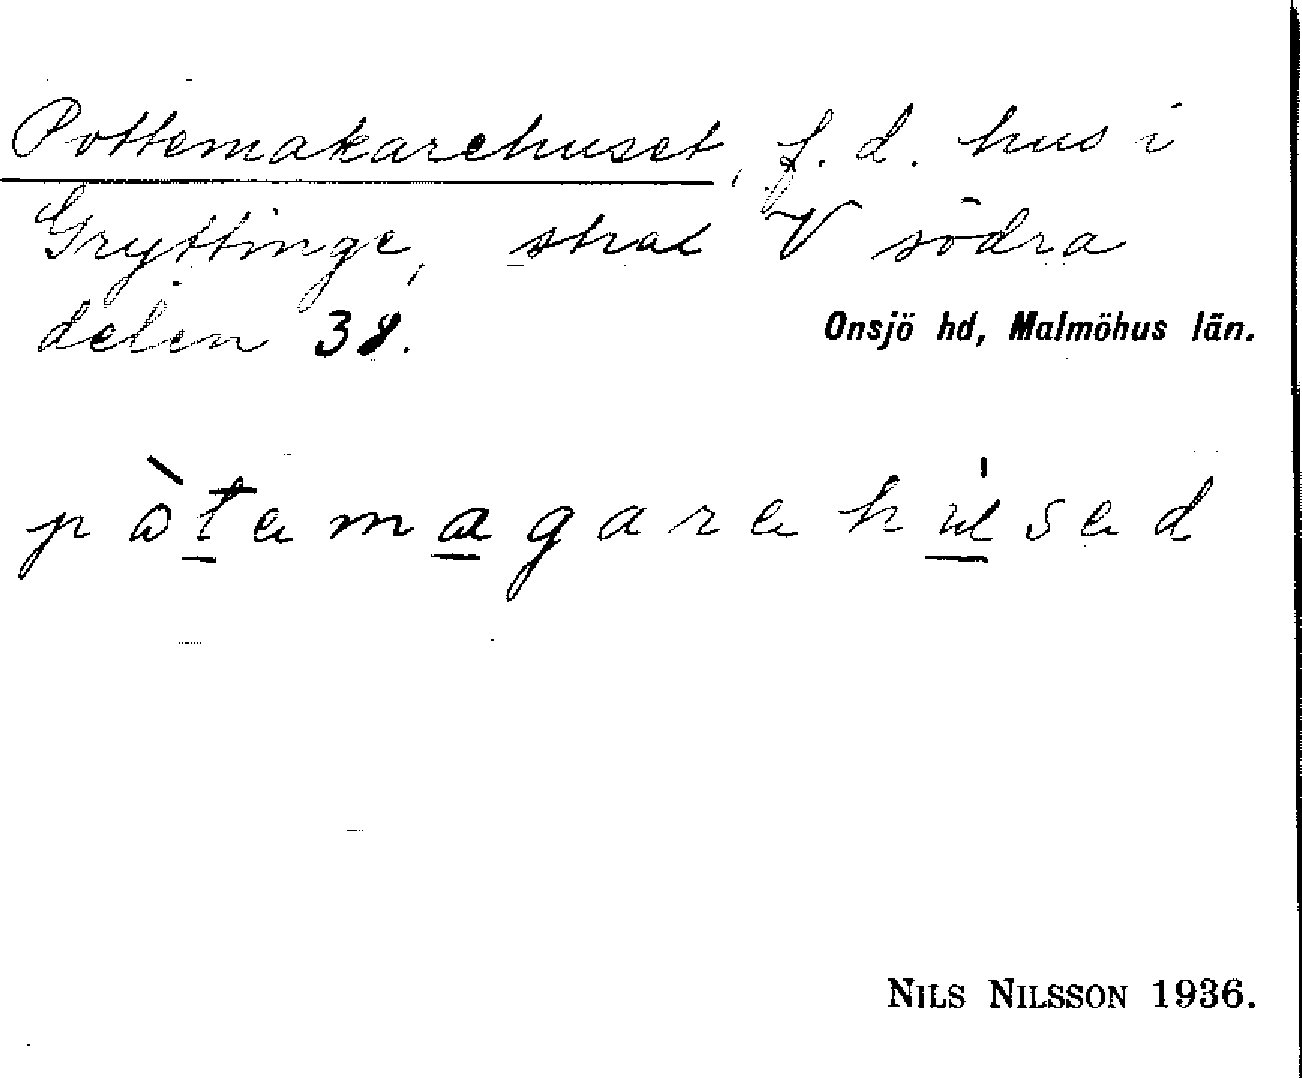 Pottemakarehuset, f.d. hus i
Gryttinge, strax V södra
delen 38.
Onsjö hd, Malmöhus län.
pòtemagarehúsed
NILS NILSSON 1936.